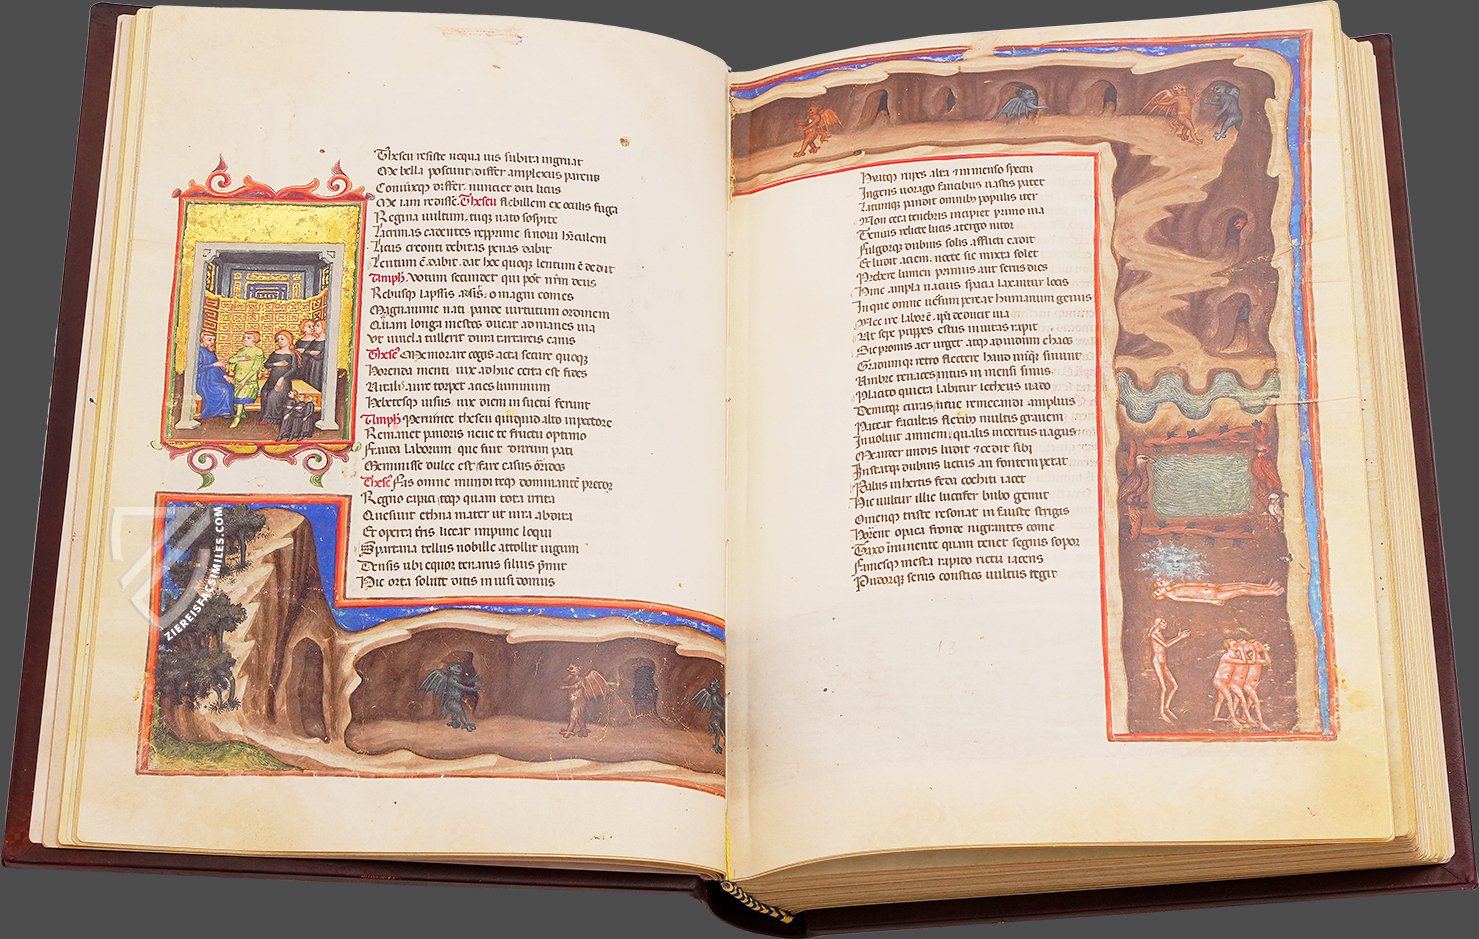 Theseu resiste nequa uis subita ingruat
Me bella poscunt, differ amplexus parens
Coniunxq; differ. nunciet diti licus
Me iam redisse. Theseu flebillem ex oculis fuga
Regina uultum, tuq; nato sospite
Lacrimas cadentes reprime si noui herculem
Licus creonti debitas penas dabit
Lentum ē dabit. dat hoc quoq; lentum ē dedit
Amph. Votum secundet qui pōt nrm deus
Rebusq; lapsis adsis. o magni comes
Magnanime nati pande uirtutum ordinem
Quam longa mestos ducat ad manes uia
Vt uincla tullerit dura tartareis canis
Thes. Memorare cogis acta secure quoq;
Horenda menti uix adhuc certa est fides
Uitalis aure torpet acies luminum
Hebetesq; uisus uix diem in sueti ferunt
Amph. Peruince theseu quicquid alto inpectore
Remanet pauoris neue te fructu optimo
Frauda laborum que fuit durum pati
Meminisse dulce est fare casus oridos
Thes. Fas omne mundi teq; dominantē precor
Regno capaci teq; quam tota irrita
Quesiuit ethna mater ut iura abdita
Et operta tris liceat impune loqui
Spartana tellus nobille attollit iugum
Densis ubi equor tenarus siluis premit
Hic ora soluit ditis in uisi domus
Hiatq; rupes alta 7 immenso specu
Ingens uorago faucibus uastis patet
Latumq; pandit omnibus populis iter
Non ceca tenebris incipit primo uia
Tenuis relicte lucis atergo nitor
Fulgorq; dubius solis afflicti cadit
Et ludit aciem. nocte sic mixta solet
Prebere lumen primus aut serus dies
Hinc ampla uacuis spacia laxantur locis
Inque omne uersum pereat humanum genus
Nec ire labor ē. ipsa deducit uia
Ut sepe puppes estus inuitas rapit
Sic pronus aer urget atq; auidum chaos
Gradumq; retro flectere haud umq; sinunt
Umbre tenaces intus in mensi sinus
Placito quieta labitur letheus uado
Demitq; curas neue remeandi amplius
Pateat facultas flexibus multis grauem
Inuoluit amnem, qualis incertus uagus
Meander undis ludit 7 cedit sibi
Instatq; dubius litus an fontem petat
Palus inhertis feda cochiti iacet
Hic uultur illic lucifer bubo gemit
Omenq; triste resonat in fauste strigis
Horent opaca fronde nigrantes come
Taxo iminente quam tenet segnis sopor
Famesq; mesta rapido rictu iacens
Pudorq; serus conscios uultus tegit
13
ZIEREIS FACSIMILES.COM